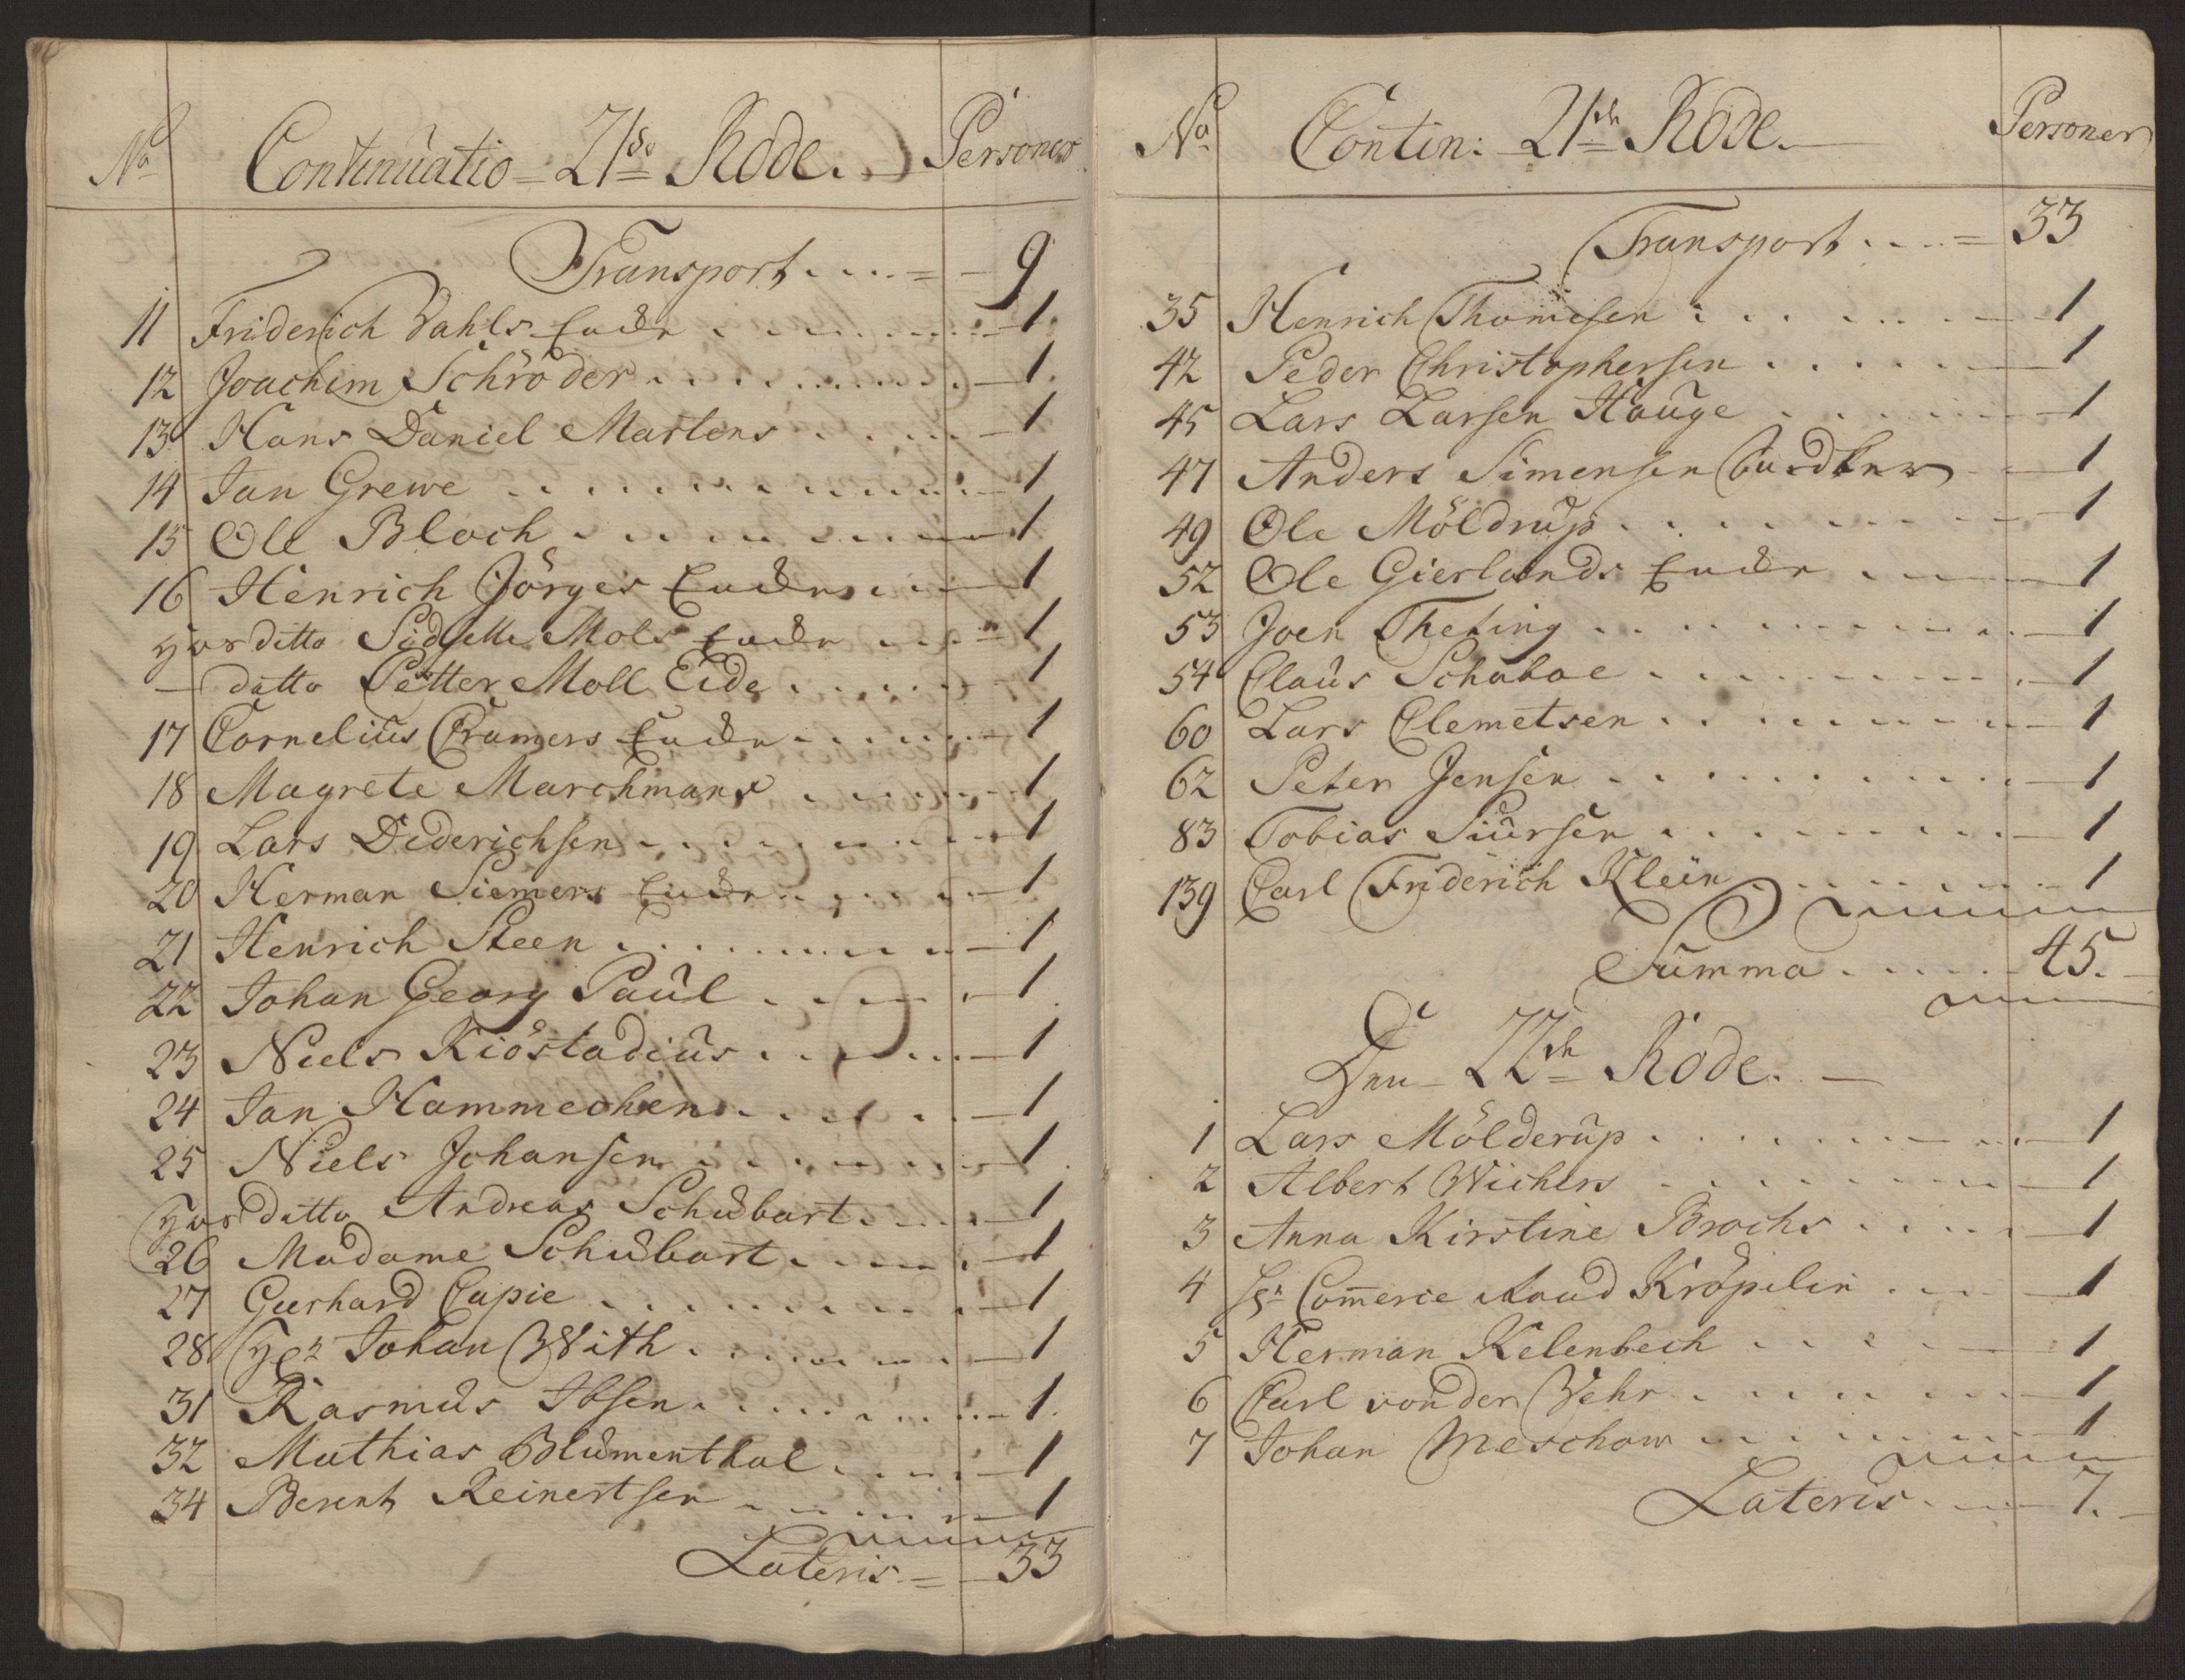 No Continuatio = 21de Rode. Personer
Transport .... = - 9
11 Friderich Dahls Encke ........ 1
12 Joachim Schröder ........ 1.
13 Hans Daniel Martens ..... 1
14 Jan Grewe ........ 1
15 Ole Bloch ........ 1
16 Henrich Jörges Encke .... 1
hos ditto Sidselle Mols Encke .... 1
- ditto Petter Moll Eide ..... 1
17 Cornelius Cramers Encke ...... 1
18 Magrete Marchmans ...... 1
19 Lars Dederichsen ....... 1
20 Herman Siemers Encke ..... 1
21 Henrich Steen ........ 1
22 Johan Georg Paul ..... 1
23 Niels Kiöstadius ...... 1
24 Jan Hammechen ...... 1
25 Niels Johansen ...... 1
hos ditto Andreas Schubart .... 1
26 Madame Schubart ..... 1
27 Gerhard Capie ....... 1
28 Hr Johan With ....... 1
31 Rasmus Ibsen ........ 1.
32 Mathias Blumenthal ..... 1
34 Berent Reinertsen ...... 1
Lateris = - 33
No Contin: 21de Rode. Personer
Transport .... = 33
35 Henrich Thomesen ....... 1
42 Peder Christophersen ...... 1
45 Lars Larsen Hauge ...... 1
47 Anders Simensen - 1
49 Ole Möldrup ........ 1
52 Ole Gierlands Encke .... 1
53 Joen Theting ......... 1
54 Claus Schaboe ........ 1
60 Lars Clemetsen ........ 1
62 Peter Jensen ........ 1
83 Tobias Siursen ........ 1
139 Carl Friderich Klein ...... 1
Summa ..... 45.
Den 22de Rode.
1 Lars Mölderup ........ 1
2 Albert Wichers ....... 1
3 Anna Kirstine Brochs .... 1
4 Hr Com̅erce Raad Kröpelin .... 1
5 Herman Kelenbech ..... 1
6 Carl von der Vehr ...... 1
7 Johan Meschow ....... 1
Lateris .... 7.